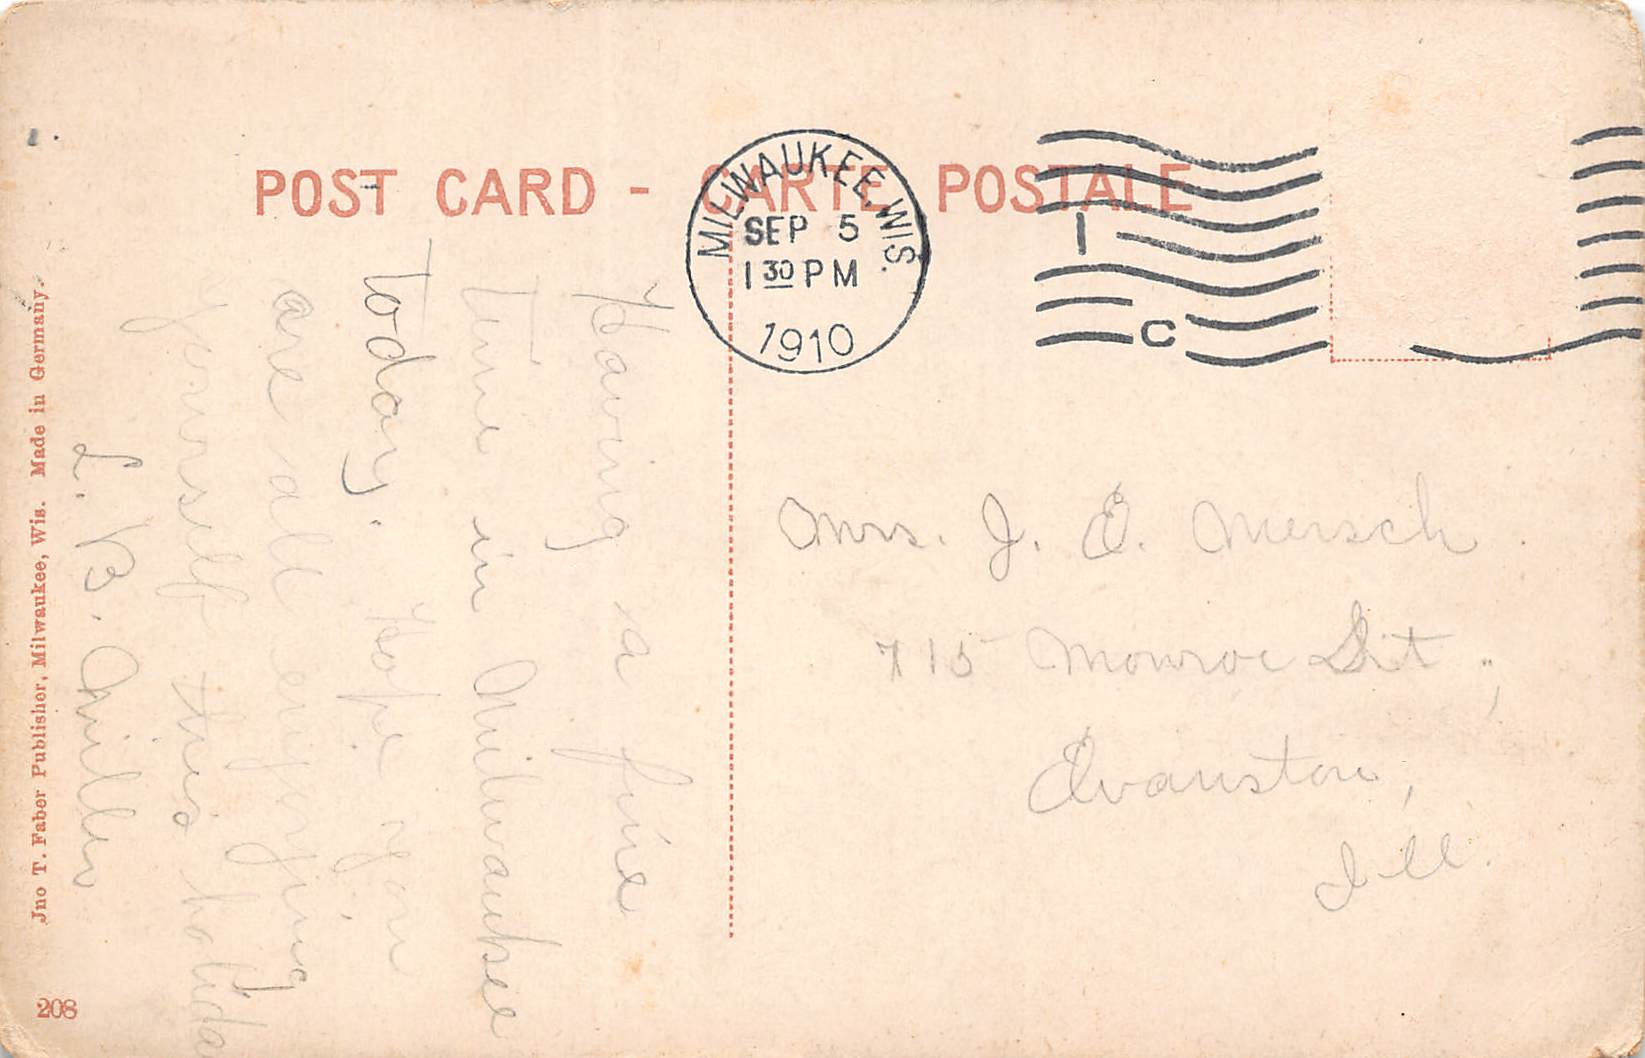 POST CARD - CARTE POSTALE
MILWAUKEE, WIS.
SEP 5
1 30 PM
1910
1
C
Having a fine
time in Milwaukee
today. Hope you
are all enjoying
yourself this holida
L. B. Miller
Mrs. J. E. Mersch
715 Monroe St.,
Evanston,
Ill.
Jno T. Faber Publisher, Milwaukee, Wis. Made in Germany.
208